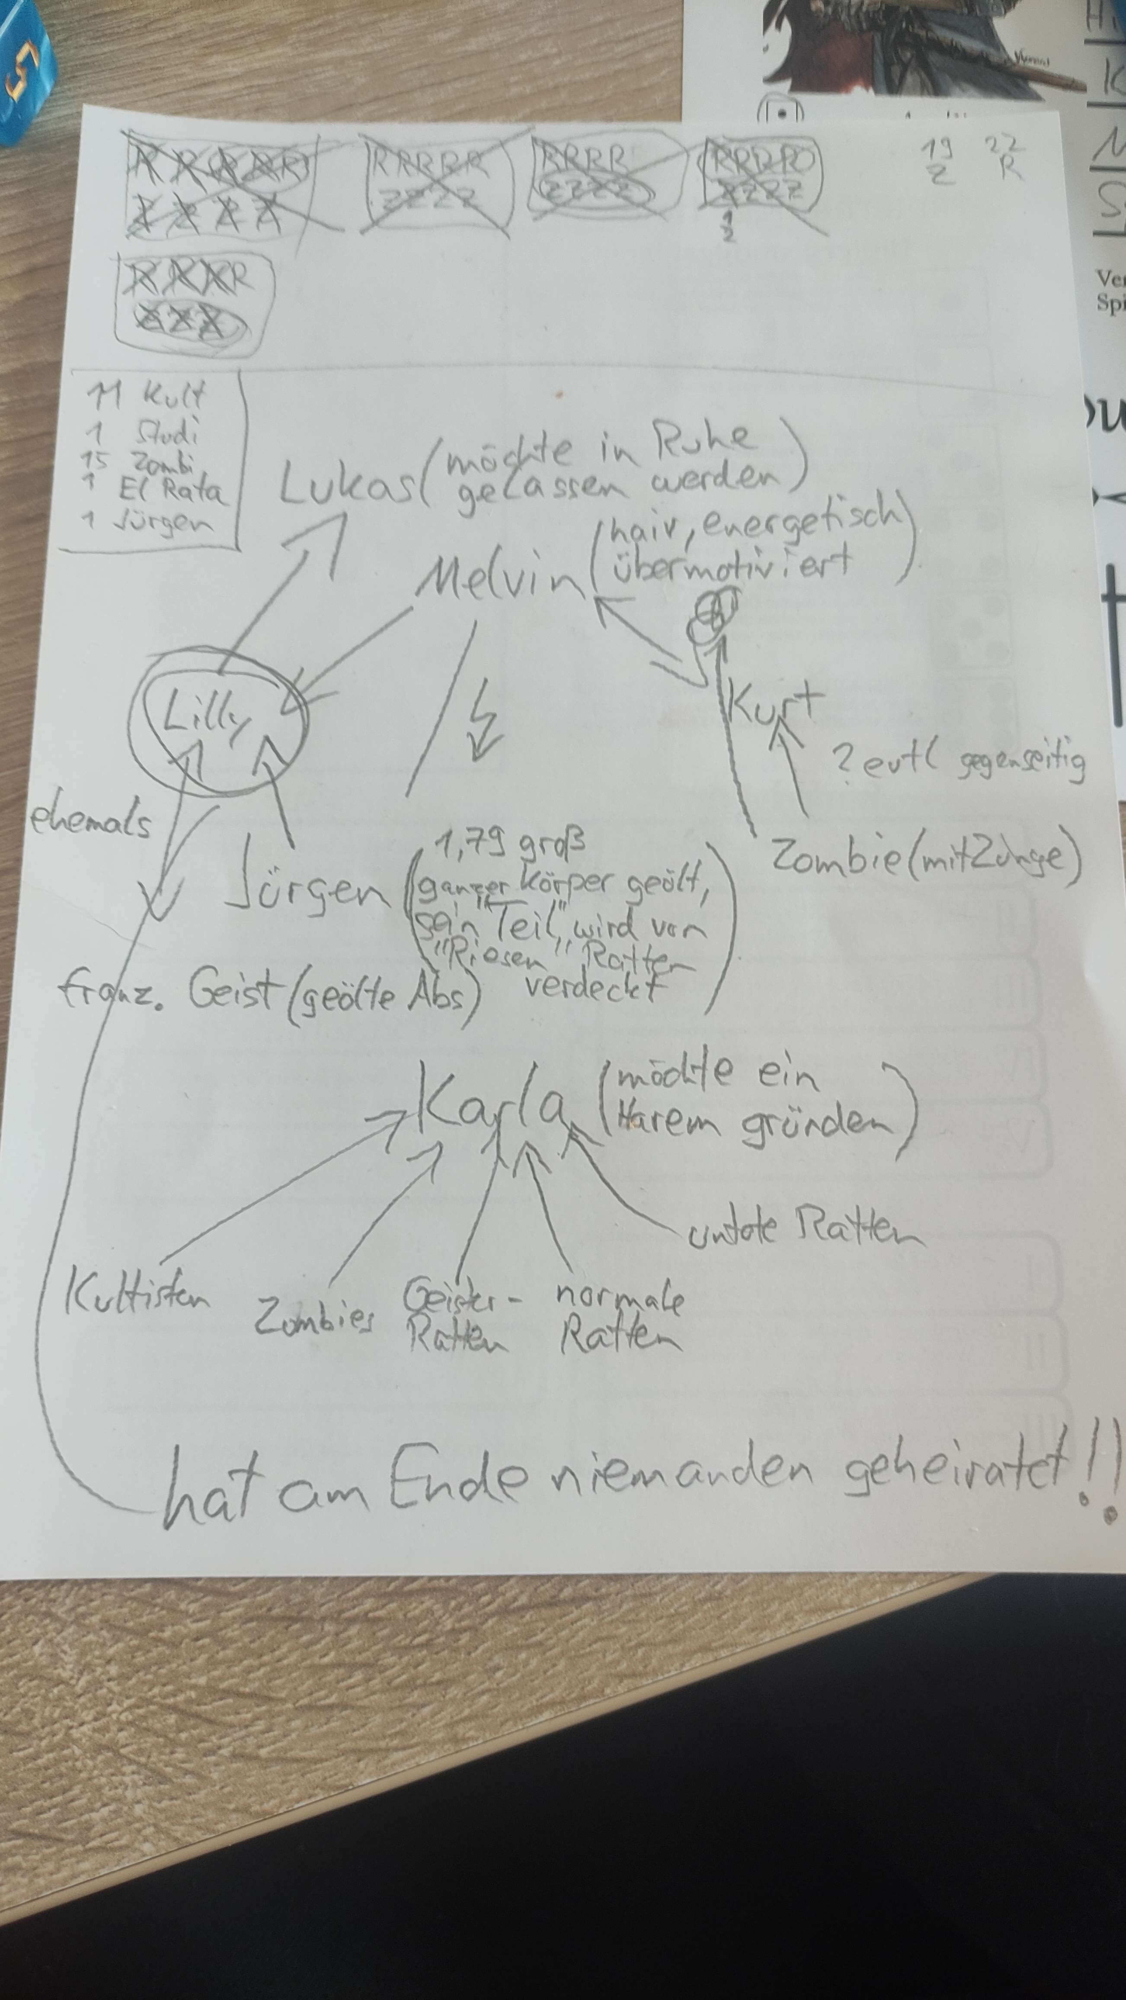 5
R R R R R
Z Z Z Z
RRRRR
ZZZZ
RRRR
ZZZZ
ZZZZ
19
Z
22
R
R R R R
Z Z Z
Ver
Spi
11 Kult
1 Studi
15 Zombi
1 El Rata
1 Jürgen
Lukas (möchte in Ruhe
gelassen werden)
Melvin (naiv, energetisch
übermotiviert)
Lilly
Kurt
? evtl gegenseitig
ehemals
Zombie (mit Zunge)
Jürgen (1,79 groß
ganzer Körper geölt,
sein "Teil" wird von
"Riesen" Ratten
verdeckt)
franz. Geist (geölte Abs)
Karla (möchte ein
Harem gründen)
untote Ratten
Kultisten
Zombies
Geister-
Ratten
normale
Ratten
hat am Ende niemanden geheiratet!!